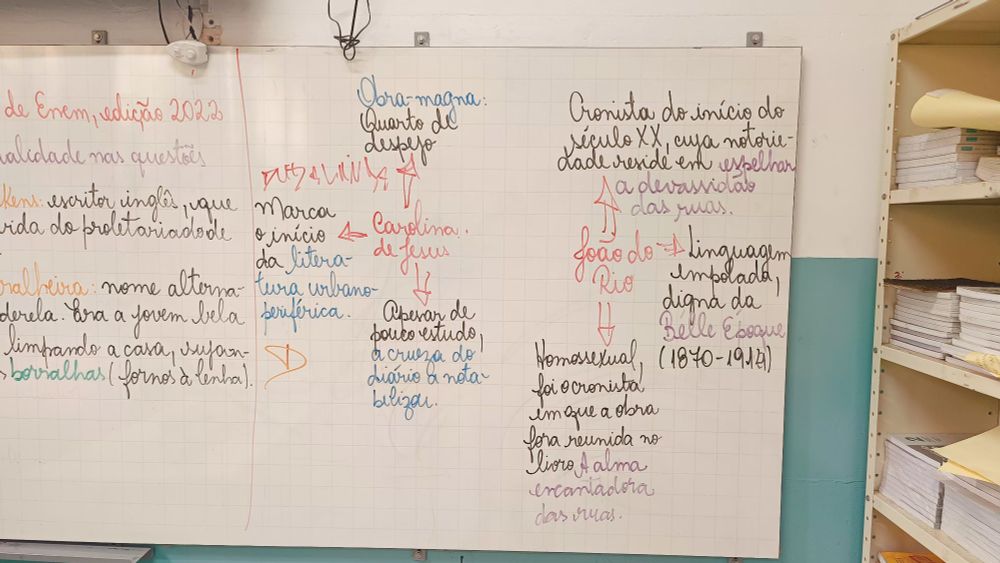 de Enem, edição 2022
alidade nas questões
kens: escritor inglês, que
vida do proletariado de
ralheira: nome alterna-
derela. Era a jovem bela
limpando a casa, sujan-
borralhas (fornos à lenha).
Obra-magna:
Quarto de
despejo
Marca
o início
da litera-
tura urbano-
periférica.
Carolina
de Jesus
Apesar de
pouco estudo,
a crueza do
diário a nota-
bilizou.
Cronista do início do
século XX, cuja notorie-
dade reside em espelhar
a devassidão
das ruas.
João do
Rio
Linguagem
empolada,
digna da
Bélle Époque
(1870-1914)
Homossexual,
foi o cronista
em que a obra
fora reunida no
livro A alma
encantadora
das ruas.